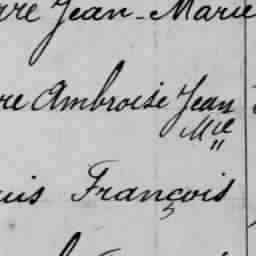 rre Jean-Marie
re Ambroise Jean
Mie
uis François